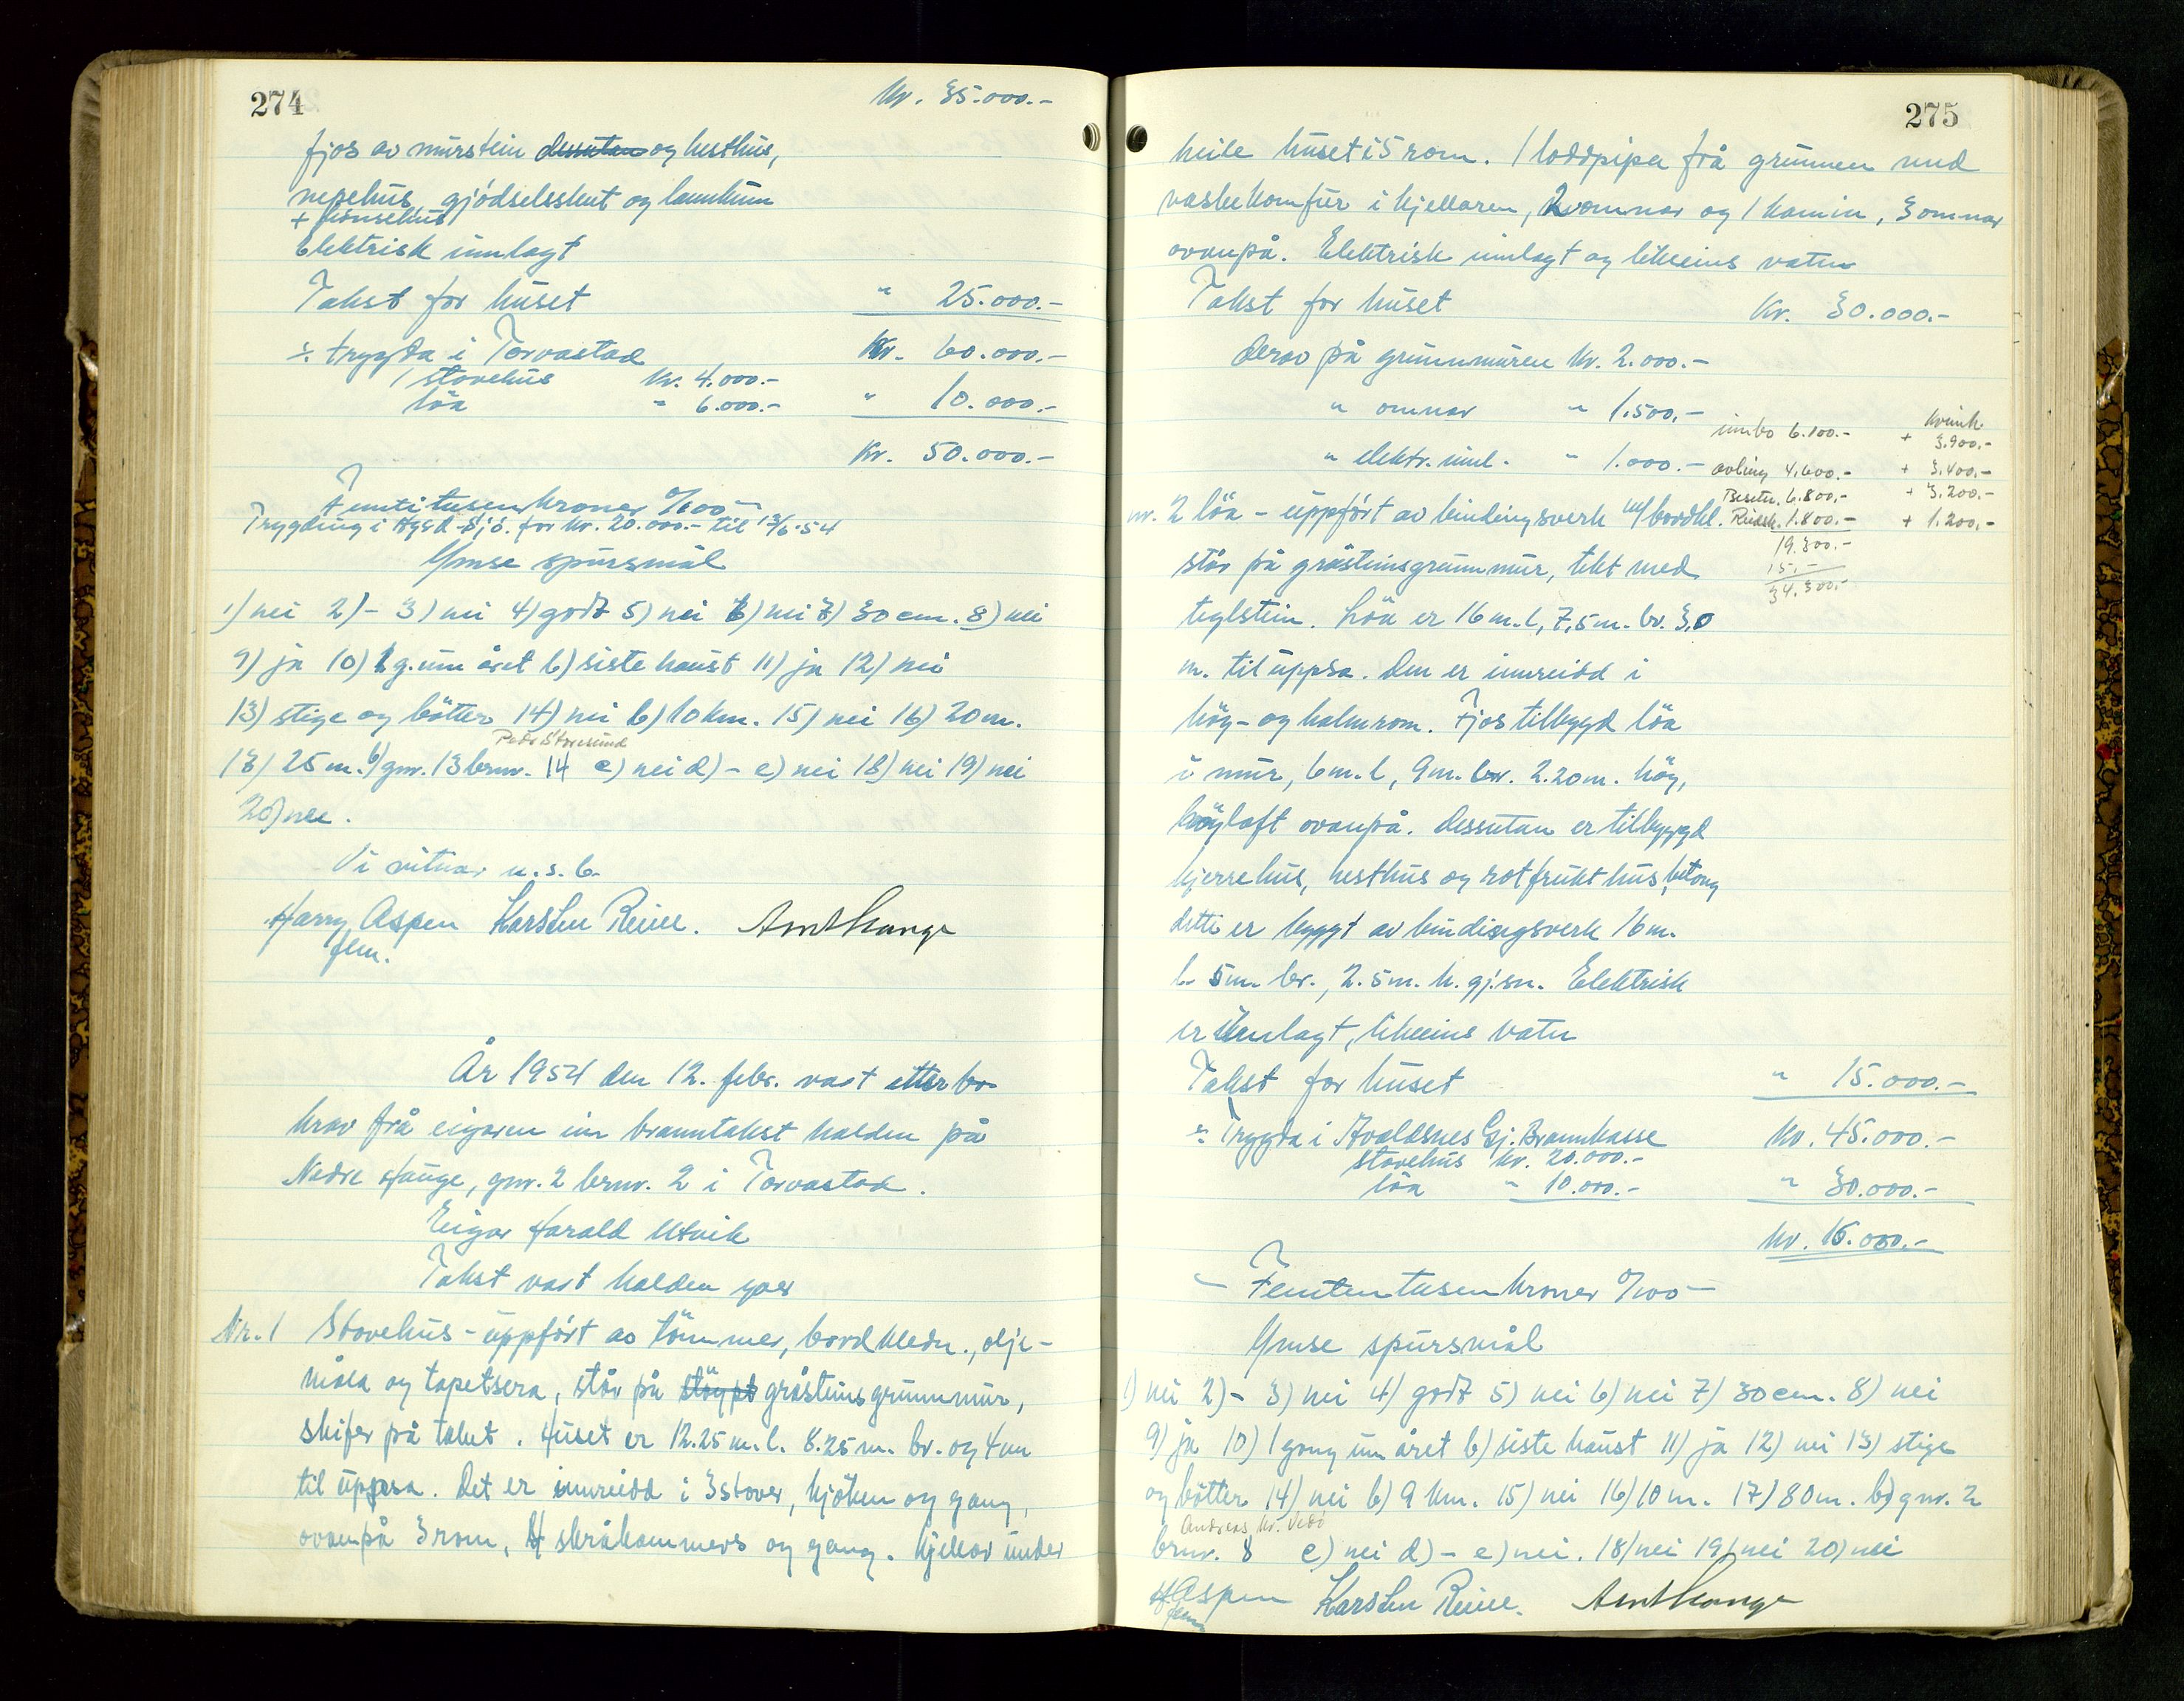 274
Kr. 35.000.-
fjos av murstein dessutan og hesthus,
nepehus, gjødselsskut og landkum
+ hønsehus
Elektrisk innlagt
Takst for huset " 25.000.-
÷ trygda i Torvastad Kr. 60.000.-
1 stovehus Kr. 4.000.-
löa " 6.000.- " 10.000.-
Kr. 50.000.-
Femti tusen kroner 0/100
Trygding i Hygd Sjö. for kr. 20.000.- til 12/6-54
Ymse spursmål
1) nei 2) - 3) nei 4) godt 5) nei 6) nei 7) 30 cm. 8) nei
9) ja 10) 1 g. um året b) siste haust 11) ja 12) nei
13) stige og bötter 14) nei b) 10 km. 15) nei 16) 20 m.
Peder Storesund
17) 25 m. b) gnr. 13 brnr. 14 c) nei d) - e) nei 18) nei 19) nei
20) nei.
Vi vitnar u.s.b.
Harry Aspen Karsten Reiee.
flm.
År 1954 den 12. febr. vart etter bo-
krav frå eigaren ein branntakst halden på
Nedre Hauge, gnr. 2 brnr. 2 i Torvastad.
Eigar Harald Utvik
Takst vart halden yver
Nr. 1 Stovehus - uppfört av tömmer, bordkledn., olje-
måla og tapetsera, står på stöypt gråsteins grunnmur,
skifer på taket. Huset er 12.25 m. l. 8.25 m. br. og 4 m
til uppsa. Det er innreidd i 3 stover, kjöken og gang,
ovanpå 3 rom, 4 skråkammers og gang. Kjellar under
275
heile huset i 5 rom. 1 loddpipa frå grunnen med
vaskekomfur i kjellaren, 2 omnar og 1 kamin, 3 omnar
ovanpå. Elektrisk innlagt og likeeins vatn
Takst for huset Kr. 30.000.-
derav på grunnmuren Kr. 2.000.-
" omnar " 1.500.-
innbo 6.100.- + 3.900.-
" elektr. innl. " 1.000.- avling 4.600.- + 3.400.-
Besetn. 6.800.- + 3.200.-
nr. 2 löa - uppfört av bindingsverk m/bordkl. Reidsk. 1.800.- + 1.200.-
19.300.-
står på gråsteinsgrunnmur, tekt med 15.-
34.300.-
teglstein. Löa er 16 m. l, 7,5 m. br. 3,0
m. til uppsa. Den er innreidd i
höy- og halmrom. Fjos tilbygd löa
i mur, 6 m. l, 9 m. br. 2.20 m. hög,
höyloft ovanpå. Dessutan er tilbyggd
kjerrehus, hesthus og rotfrukthus, betong
dette er byggt av bindingsverk 16 m.
l. 5 m. br., 2.5 m. h. gj.sn. Elektrisk
er innlagt, likeeins vatn
Takst for huset " 15.000.-
÷ Trygda i Avaldsnes Gj. Brannkasse Kr. 45.000.-
stovehus Kr. 20.000.-
löa " 10.000.- " 30.000.-
Kr. 15.000.-
- Femten tusen kroner 0/100 -
Ymse spursmål
1) nei 2) - 3) nei 4) godt 5) nei 6) nei 7) 30 cm. 8) nei
9) ja 10) 1 gong um året b) siste haust 11) ja 12) nei 13) stige
og bötter 14) nei b) 9 km. 15) nei 16) 10 m. 17) 80 m. b) gnr. 2
Andreas Kr. Vedö
brnr. 8 c) nei d) - e) nei. 18) nei 19) nei 20) nei
H Aspen Karsten Reiee.
flm